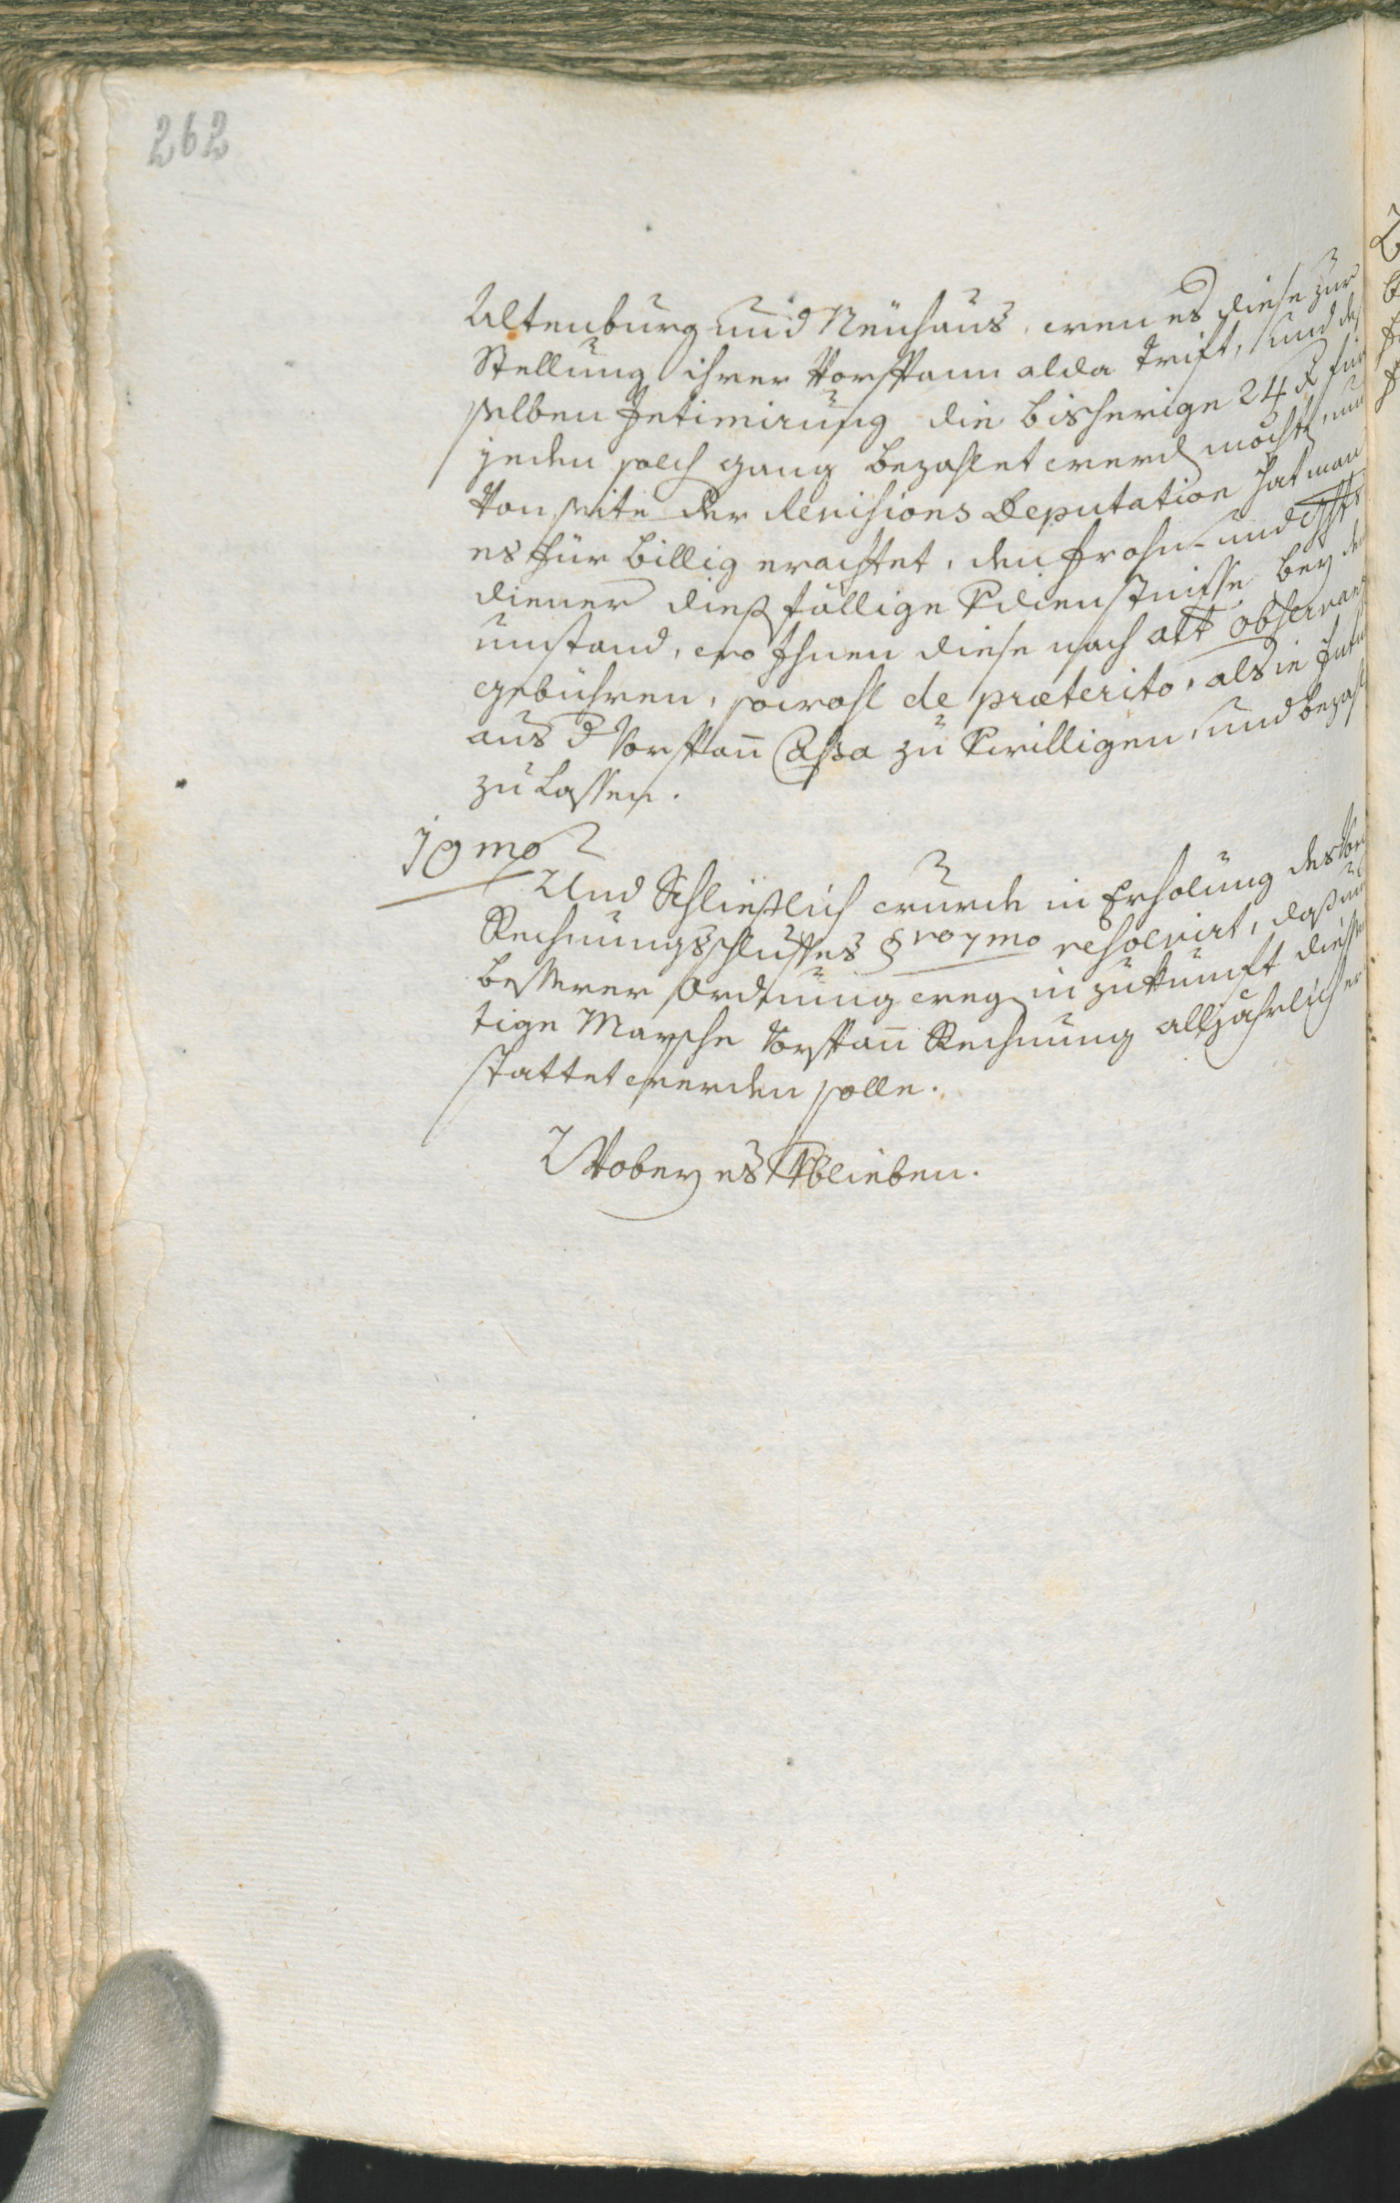 262
Altenburg und Neuhaus, wen es diese zur
Stellung ihrer Vorspann alda trift, und des
selben Intimirung die bisherige 24 x für
jeden solch gang bezahlet werd möcht, nun
Von seite der Revisions Deputation hat man
es für billig erachtet, den frohn- und
diener dießfällige Vdienstnisse bey dem
umstand, wo Ihnen diese nach alt observanz
gebühren, sowohl de præterito, als in futur
aus d Vorspan̄ Cassa zu Vwilligen, und bezahl
zu Lassen.
10mo
Und Schließlich wurde in Erholung des Vor
Rechnungsschlusses § resolvirt, daß um
besserer ordnung weg in zukunft dießei
tige Marsche Vorspan̄ Rechnung alljährlich er
stattet werden solle.
Wobey es Vblieben.